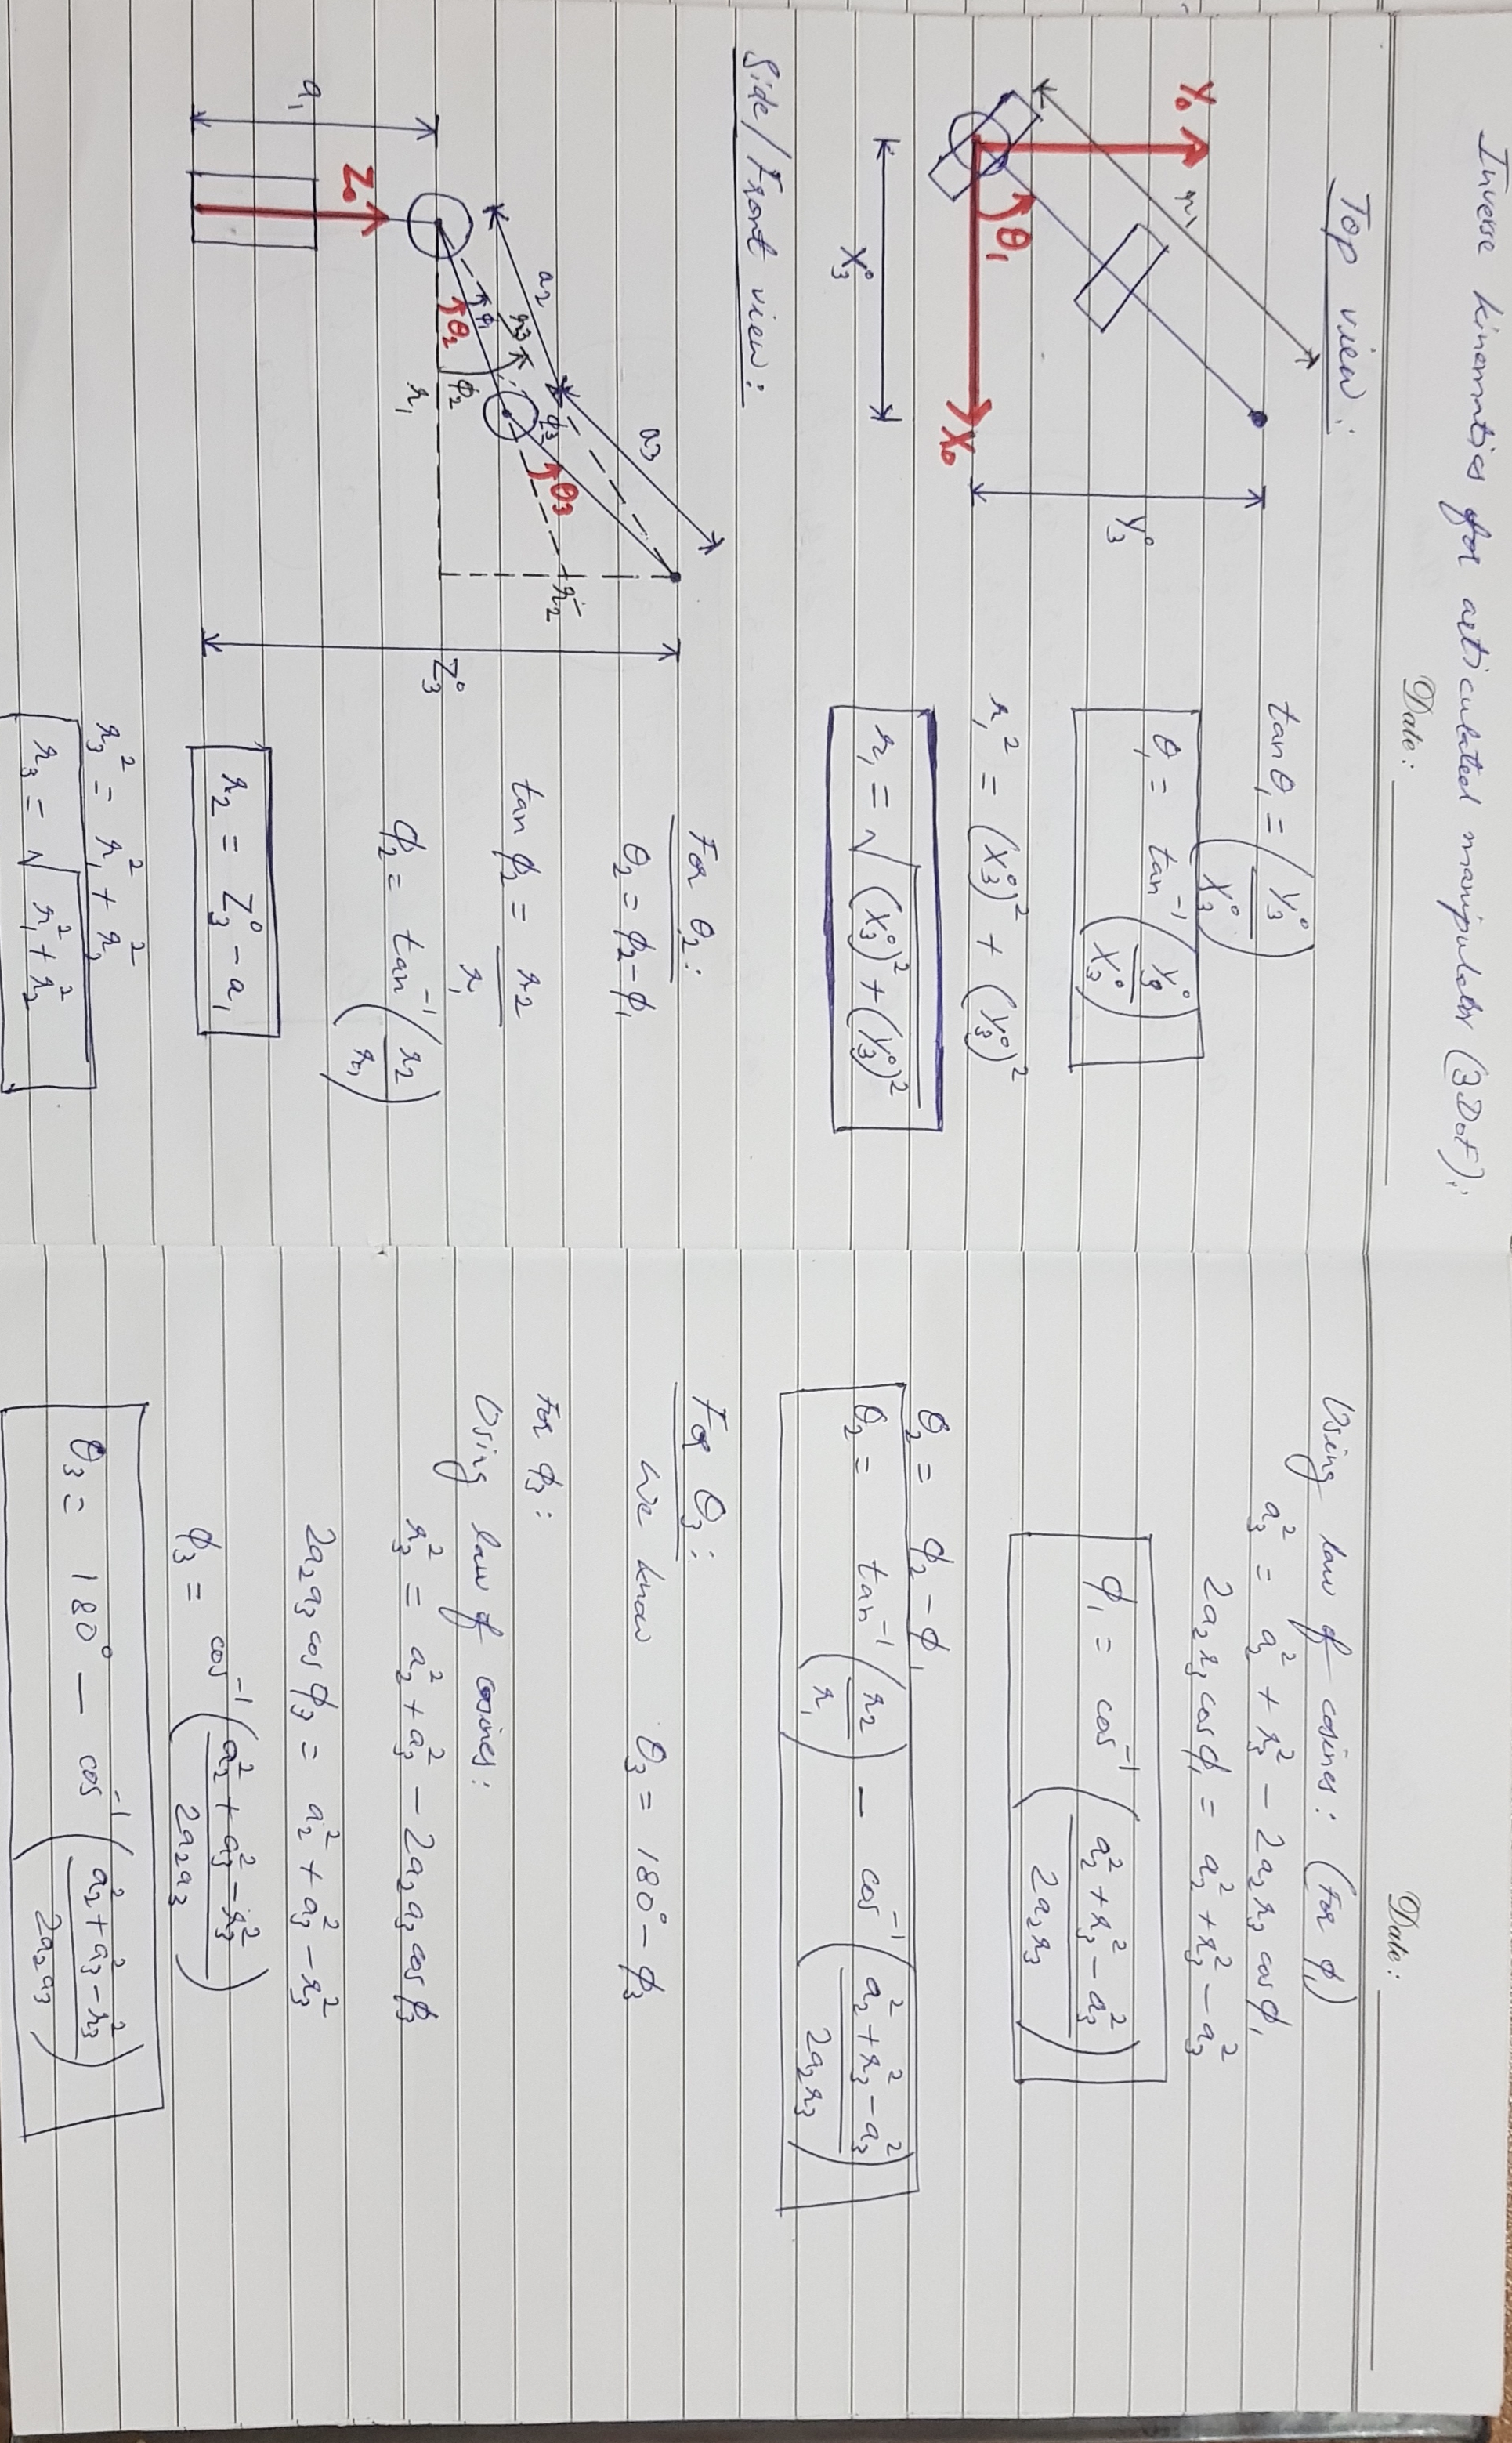 Inverse kinematics for articulated manipulator (3DoF):
Date :
Top view :
r₁
Y₀
θ₁
X₀
Y₃⁰
X₃⁰
tan θ₁ = (Y₃⁰ / X₃⁰)
θ₁ = tan⁻¹ (Y₃⁰ / X₃⁰)
r₁² = (X₃⁰)² + (Y₃⁰)²
r₁ = √((X₃⁰)² + (Y₃⁰)²)
Side/Front view :
a₃
a₂
r₃
ϕ₃
θ₃
r₂
ϕ₁
θ₂
ϕ₂
r₁
Z₃⁰
Z₀
a₁
For θ₂ :
θ₂ = ϕ₂ - ϕ₁
tan ϕ₂ = r₂ / r₁
ϕ₂ = tan⁻¹ (r₂ / r₁)
r₂ = Z₃⁰ - a₁
r₃² = r₁² + r₂²
r₃ = √(r₁² + r₂²)
Date :
Using law of cosines : (For ϕ₁)
a₃² = a₂² + r₃² - 2a₂r₃ cos ϕ₁
2a₂r₃ cos ϕ₁ = a₂² + r₃² - a₃²
ϕ₁ = cos⁻¹ ((a₂² + r₃² - a₃²) / 2a₂r₃)
θ₂ = ϕ₂ - ϕ₁
θ₂ = tan⁻¹ (r₂ / r₁) - cos⁻¹ ((a₂² + r₃² - a₃²) / 2a₂r₃)
For θ₃ :
We know θ₃ = 180° - ϕ₃
For ϕ₃ :
Using law of cosines :
r₃² = a₂² + a₃² - 2a₂a₃ cos ϕ₃
2a₂a₃ cos ϕ₃ = a₂² + a₃² - r₃²
ϕ₃ = cos⁻¹ ((a₂² + a₃² - r₃²) / 2a₂a₃)
θ₃ = 180° - cos⁻¹ ((a₂² + a₃² - r₃²) / 2a₂a₃)